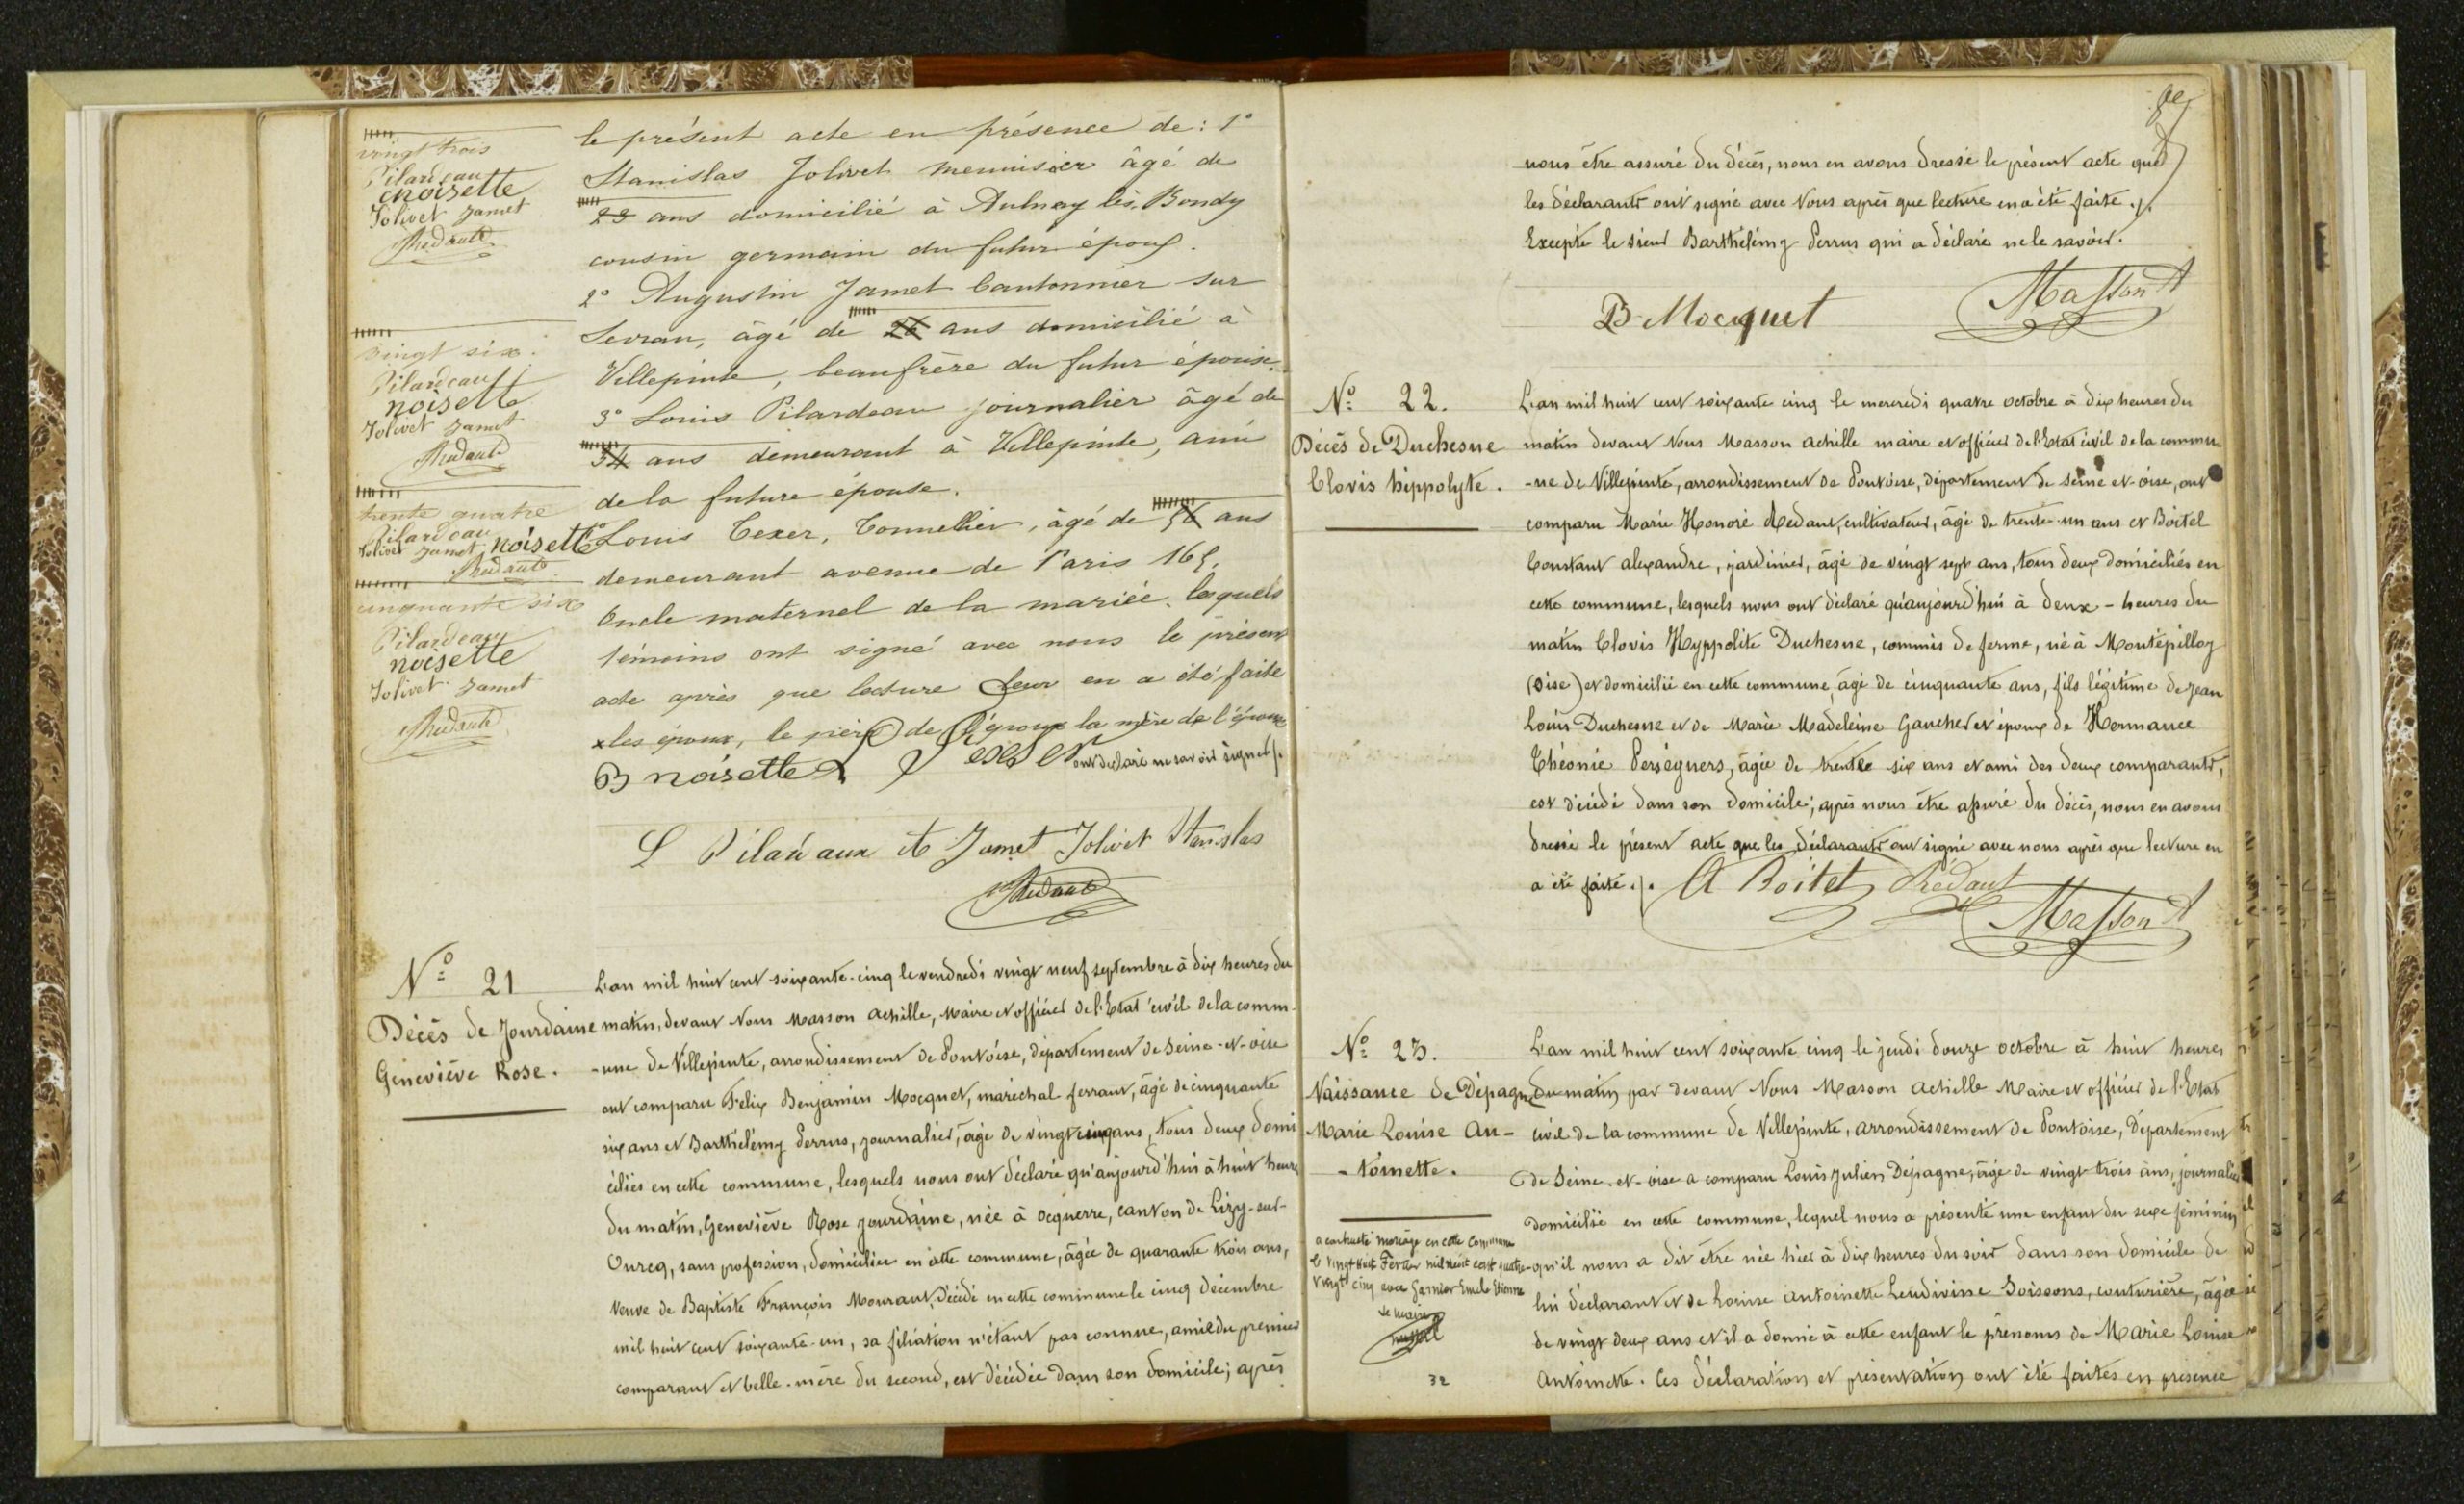 vingt trois
Pilardeau
noisette
Jolivet Jamet
Rédaut
vingt six.
Pilardeau
noisette
Jolivet Jamet
Rédaut
trente quatre
Pilardeau
Jolivet Jamet noisette
Rédaut
cinquante six
Pilardeau
noisette
Jolivet Jamet
Rédaut
le présent acte en présence de : 1°
Stanislas Jolivet menuisier âgé de
23 ans domicilié à Aulnay lès Bondy
cousin germain du futur époux.
2° Augustin Jamet Cantonnier sur
Sevran, âgé de 26 ans domicilié à
Villepinte, beau frère du futur épouse.
3° Louis Pilardeau journalier âgé de
34 ans demeurant à Villepinte, ami
de la future épouse.
Louis Texer, Tonnellier, âgé de 56 ans
demeurant avenue de Paris 165,
Oncle maternel de la mariée, lesquels
témoins ont signé avec nous le présent
acte après que lecture leur en a été faite
x les époux, le père de l'époux la mère de l'épouse
B noisette ont déclaré ne savoir signer /.
L Pilardaux A Jamet Jolivet Stanislas
Rédaut
N° 21
Décès de Jourdaine
Geneviève Rose.
L'an mil huit cent soixante-cinq le vendredi vingt neuf septembre à dix heures du
matin, devant Nous Masson Achille, Maire et officier de l'Etat civil de la comm-
-une de Villepinte, arrondissement de Pontoise, département de Seine-et-oise
ont comparu Félix Benjamin Mocquet, maréchal ferrant, âgé de cinquante
six ans et Barthélémy Perrus, journalier, âgé de vingt cinq ans, tous deux domi
ciliés en cette commune, lesquels nous ont déclaré qu'aujourd'hui à huit heures
du matin, Geneviève Rose Jourdaine, née à Ocquerre, canton de Lizy-sur-
Ourcq, sans profession, domiciliée en cette commune, âgée de quarante trois ans,
Veuve de Baptiste François Mourant, décédé en cette commune le cinq décembre
mil huit cent soixante-un, sa filiation n'étant pas connue, amie du premier
comparant et belle-mère du second, est décédée dans son domicile; après
nous être assuré du décès, nous en avons dressé le présent acte que
les déclarants ont signé avec Nous après que lecture en a été faite ./.
Excepté le sieur Barthélémy Perrus qui a déclaré ne le savoir.
B Mocquet Masson A
N° 22.
Décès de Duchesne
Clovis hippolyte.
L'an mil huit cent soixante cinq le mercredi quatre octobre à dix heures du
matin devant Nous Masson Achille maire et officier de l'Etat civil de la commu
-ne de Villepinte, arrondissement de Pontoise, département de Seine et-oise, ont
comparu Marie Honoré Redaut, cultivateur, âgé de trente-un ans et Boitel
Constant alexandre, jardinier, âgé de vingt sept ans, tous deux domiciliés en
cette commune, lesquels nous ont déclaré qu'aujourd'hui à deux - heures du
matin Clovis Hyppolite Duchesne, commis de ferme, né à Montépilloy
(Oise) et domicilié en cette commune, âgé de cinquante ans, fils légitime de Jean
Louis Duchesne et de Marie Madeleine Gaucher et époux de Hermance
Théonie Perséguers, âgée de trente six ans et ami des deux comparants,
est décédé dans son domicile; après nous être assuré du décès, nous en avons
dressé le présent acte que les déclarants ont signé avec nous après que lecture en
a été faite ./. A Boitel Rédaut
Masson A
N° 23.
Naissance de Dépagne
Marie Louise An-
-toinette.
a contracté mariage en cette Commune
le vingt huit Février mil huit cent quatre
vingt cinq avec Garnier Emile Etienne
Le maire
32
L'an mil huit cent soixante cinq le jeudi douze octobre à huit heures
du matin par devant Nous Masson Achille Maire et officier de l'Etat
civil de la commune de Villepinte, arrondissement de Pontoise, Département
de Seine-et-oise a comparu Louis Julien Dépagne, âgé de vingt trois ans, journalier
domicilié en cette commune, lequel nous a présenté une enfant du sexe féminin
qu'il nous a dit être née hier à dix heures du soir dans son domicile de
lui déclarant et de Louise Antoinette Leudivine Soissons, couturière, âgée
de vingt deux ans et il a donné à cette enfant le prénoms de Marie Louise
Antoinette. Ces déclaration et présentation ont été faites en présence